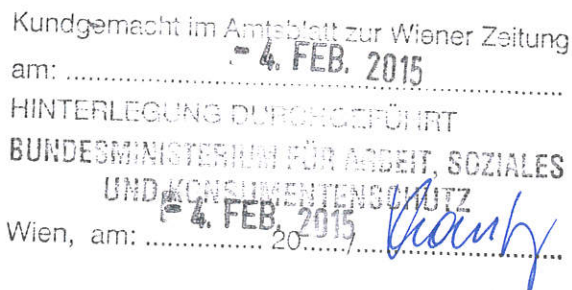 Kundgemacht im Amtsblatt zur Wiener Zeitung
am: - 4. FEB. 2015
HINTERLEGUNG DURCHGEFÜHRT
BUNDESMINISTERIUM FÜR ARBEIT, SOZIALES
UND KONSUMENTENSCHUTZ
- 4. FEB. 2015
Wien, am: .............. 20....../